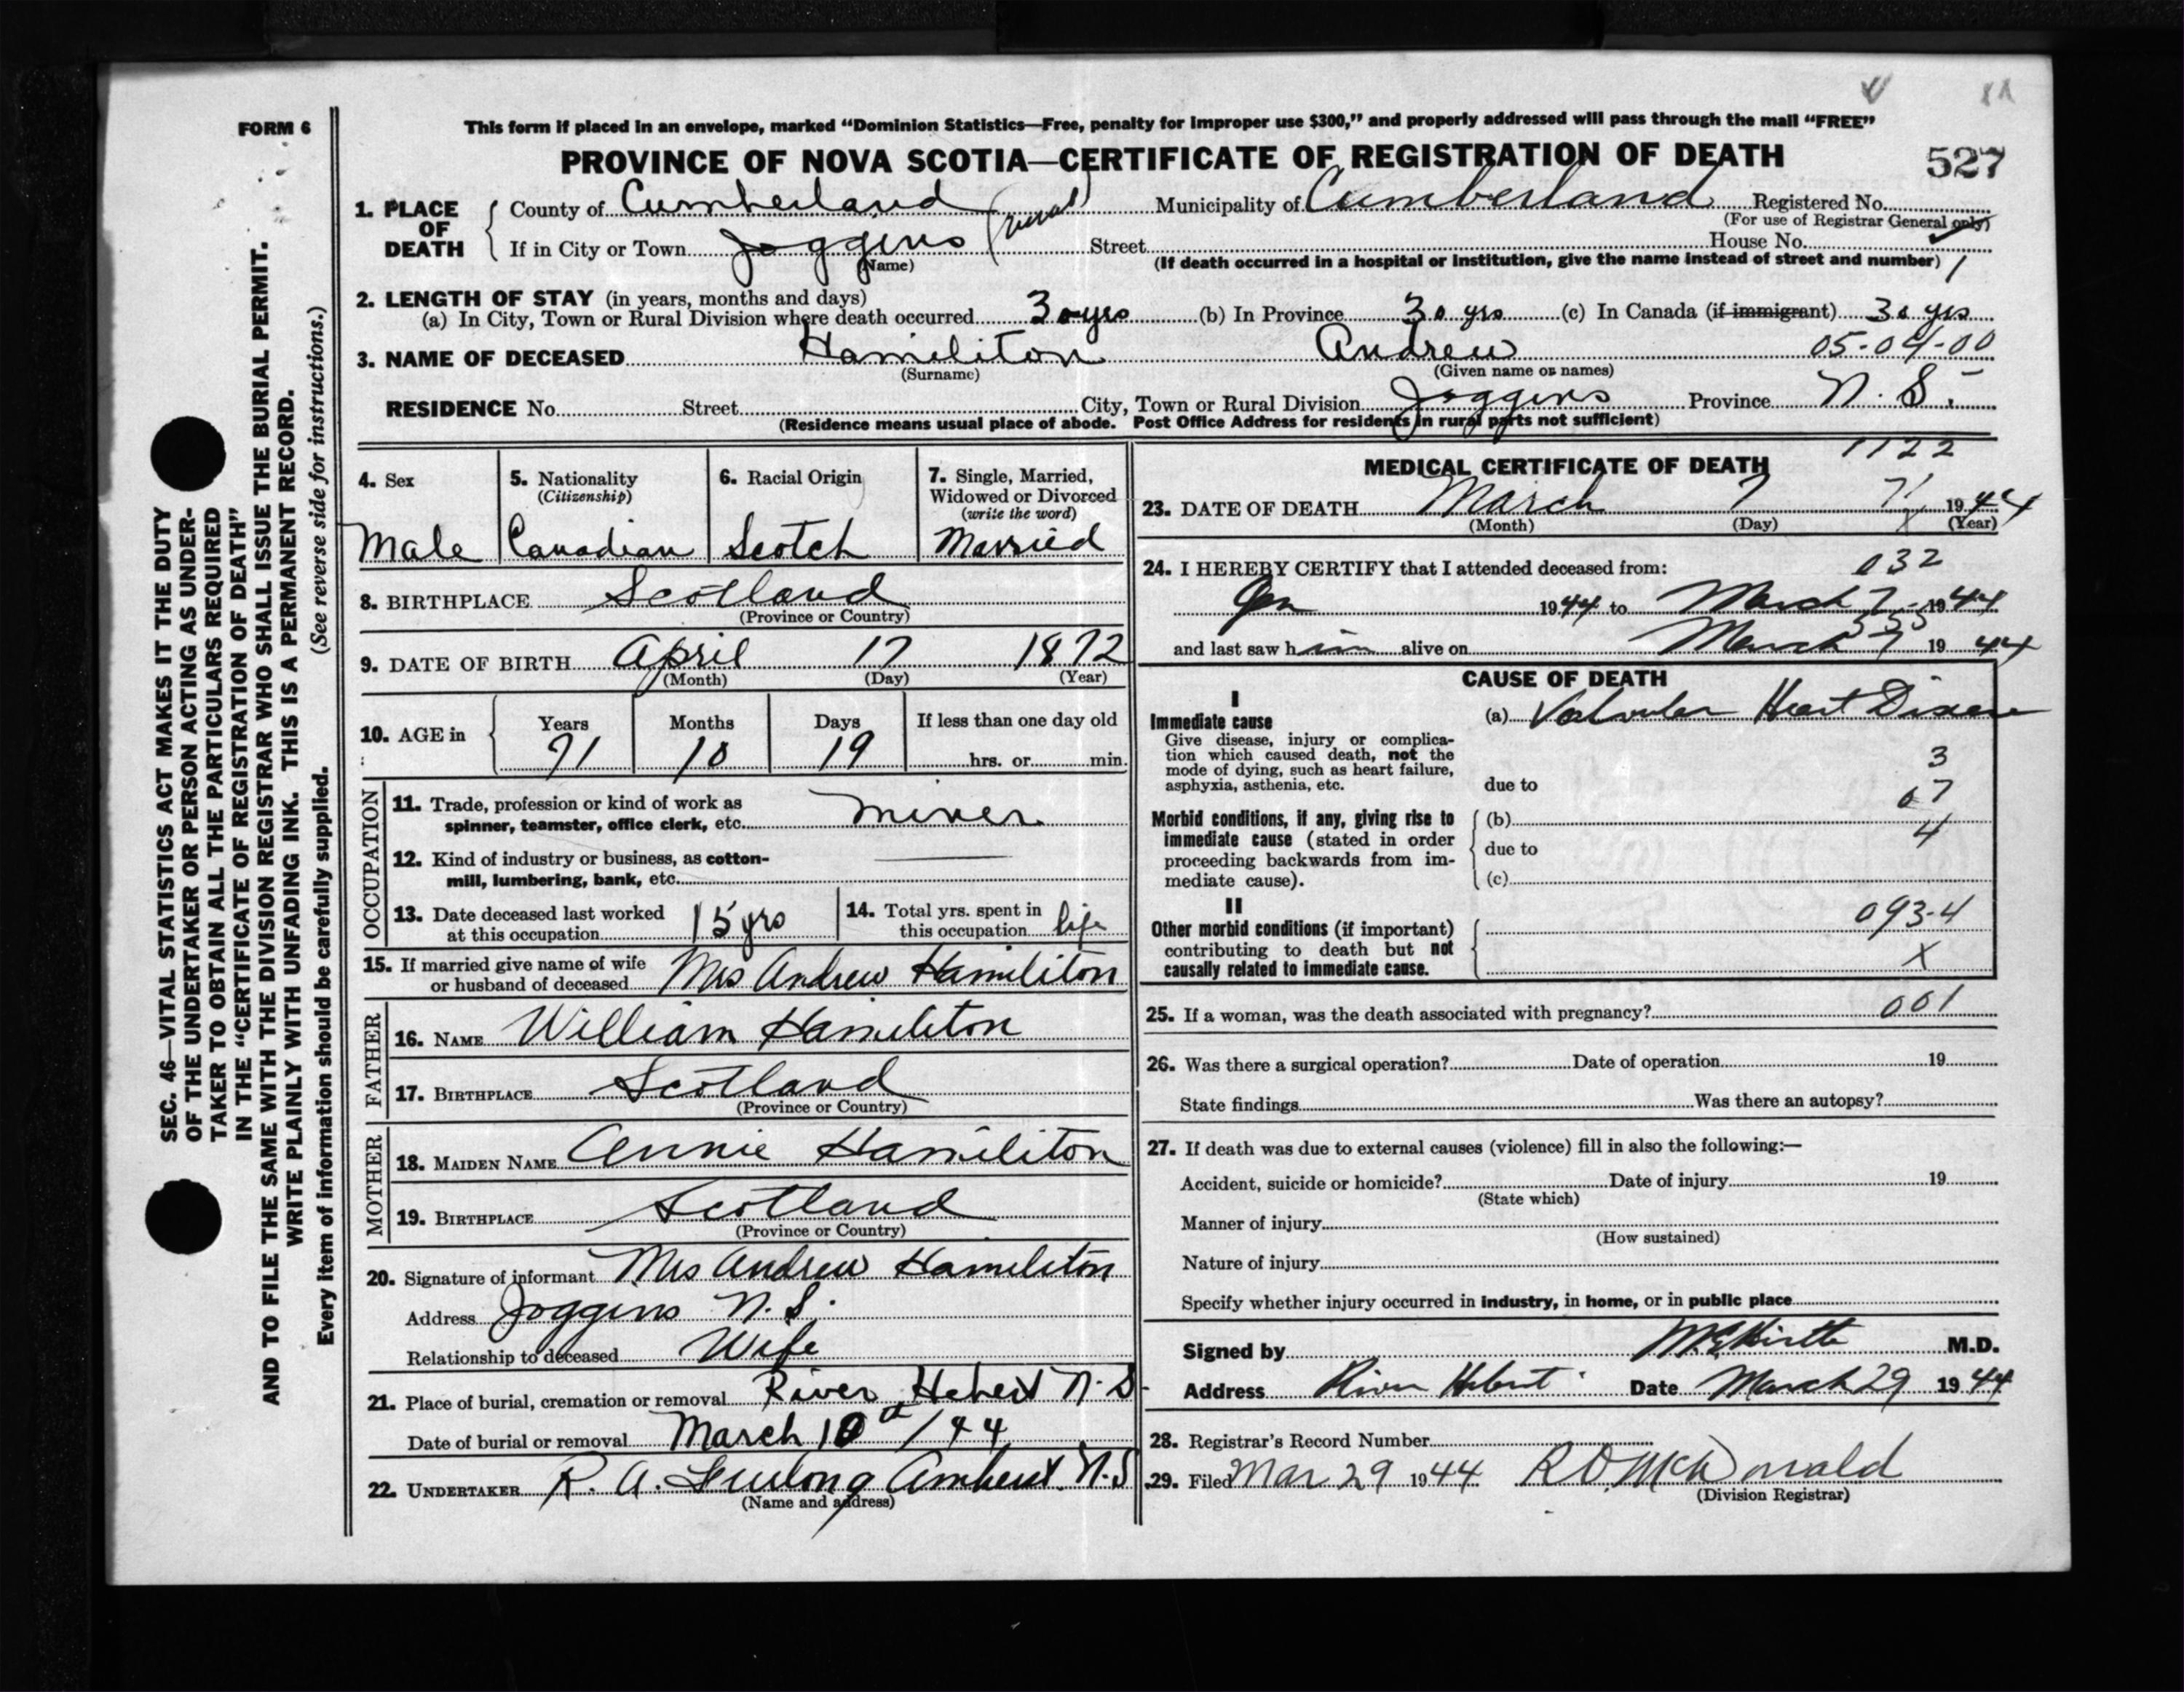 FORM 6
This form if placed in an envelope, marked “Dominion Statistics—Free, penalty for improper use $300,” and properly addressed will pass through the mail “FREE”
PROVINCE OF NOVA SCOTIA—CERTIFICATE OF REGISTRATION OF DEATH
527
1. PLACE OF DEATH
County of Cumberland (rural) Municipality of Cumberland Registered No.
(For use of Registrar General only)
If in City or Town Joggins Street House No.
(Name) (If death occurred in a hospital or institution, give the name instead of street and number) 1
2. LENGTH OF STAY (in years, months and days)
(a) In City, Town or Rural Division where death occurred 30 yrs (b) In Province 30 yrs (c) In Canada (if immigrant) 30 yrs
3. NAME OF DECEASED Hamiliton Andrew 05-04-00
(Surname) (Given name or names)
RESIDENCE No. Street City, Town or Rural Division Joggins Province N. S.
(Residence means usual place of abode. Post Office Address for residents in rural parts not sufficient)
4. Sex
Male
5. Nationality
(Citizenship)
Canadian
6. Racial Origin
Scotch
7. Single, Married,
Widowed or Divorced
(write the word)
Married
8. BIRTHPLACE Scotland
(Province or Country)
9. DATE OF BIRTH April 17 1872
(Month) (Day) (Year)
10. AGE in
Years Months Days If less than one day old
71 10 19 hrs. or min.
OCCUPATION
11. Trade, profession or kind of work as
spinner, teamster, office clerk, etc. Miner
12. Kind of industry or business, as cotton-
mill, lumbering, bank, etc.
13. Date deceased last worked
at this occupation 15 yrs
14. Total yrs. spent in
this occupation life
15. If married give name of wife
or husband of deceased Mrs Andrew Hamiliton
FATHER
16. NAME William Hamiliton
17. BIRTHPLACE Scotland
(Province or Country)
MOTHER
18. MAIDEN NAME Annie Hamiliton
19. BIRTHPLACE Scotland
(Province or Country)
20. Signature of informant Mrs Andrew Hamiliton
Address Joggins N. S.
Relationship to deceased Wife
21. Place of burial, cremation or removal River Hebert N. S
Date of burial or removal March 10th/44
22. UNDERTAKER R. A. Furlong Amherst N.S
(Name and address)
1122
MEDICAL CERTIFICATE OF DEATH
23. DATE OF DEATH March 7 1944
(Month) (Day) (Year)
24. I HEREBY CERTIFY that I attended deceased from: 032
Jan 1944 to March 7 1944
and last saw him alive on March 7 1944
CAUSE OF DEATH
I
Immediate cause
Give disease, injury or complica-
tion which caused death, not the
mode of dying, such as heart failure,
asphyxia, asthenia, etc.
(a) Valvular Heart Disease
3
due to
07
Morbid conditions, if any, giving rise to
immediate cause (stated in order
proceeding backwards from im-
mediate cause).
(b)
4
due to
(c)
II
Other morbid conditions (if important)
contributing to death but not
causally related to immediate cause.
093-4
X
25. If a woman, was the death associated with pregnancy? 001
26. Was there a surgical operation? Date of operation 19
State findings Was there an autopsy?
27. If death was due to external causes (violence) fill in also the following:—
Accident, suicide or homicide? Date of injury 19
(State which)
Manner of injury
(How sustained)
Nature of injury
Specify whether injury occurred in industry, in home, or in public place
Signed by M.D.
Address River Hebert Date March 29 1944
28. Registrar's Record Number
29. Filed Mar 29 1944 R D McDonald
(Division Registrar)
SEC. 46—VITAL STATISTICS ACT MAKES IT THE DUTY
OF THE UNDERTAKER OR PERSON ACTING AS UNDER-
TAKER TO OBTAIN ALL THE PARTICULARS REQUIRED
IN THE “CERTIFICATE OF REGISTRATION OF DEATH”
AND TO FILE THE SAME WITH THE DIVISION REGISTRAR WHO SHALL ISSUE THE BURIAL PERMIT.
WRITE PLAINLY WITH UNFADING INK. THIS IS A PERMANENT RECORD.
Every item of information should be carefully supplied. (See reverse side for instructions.)